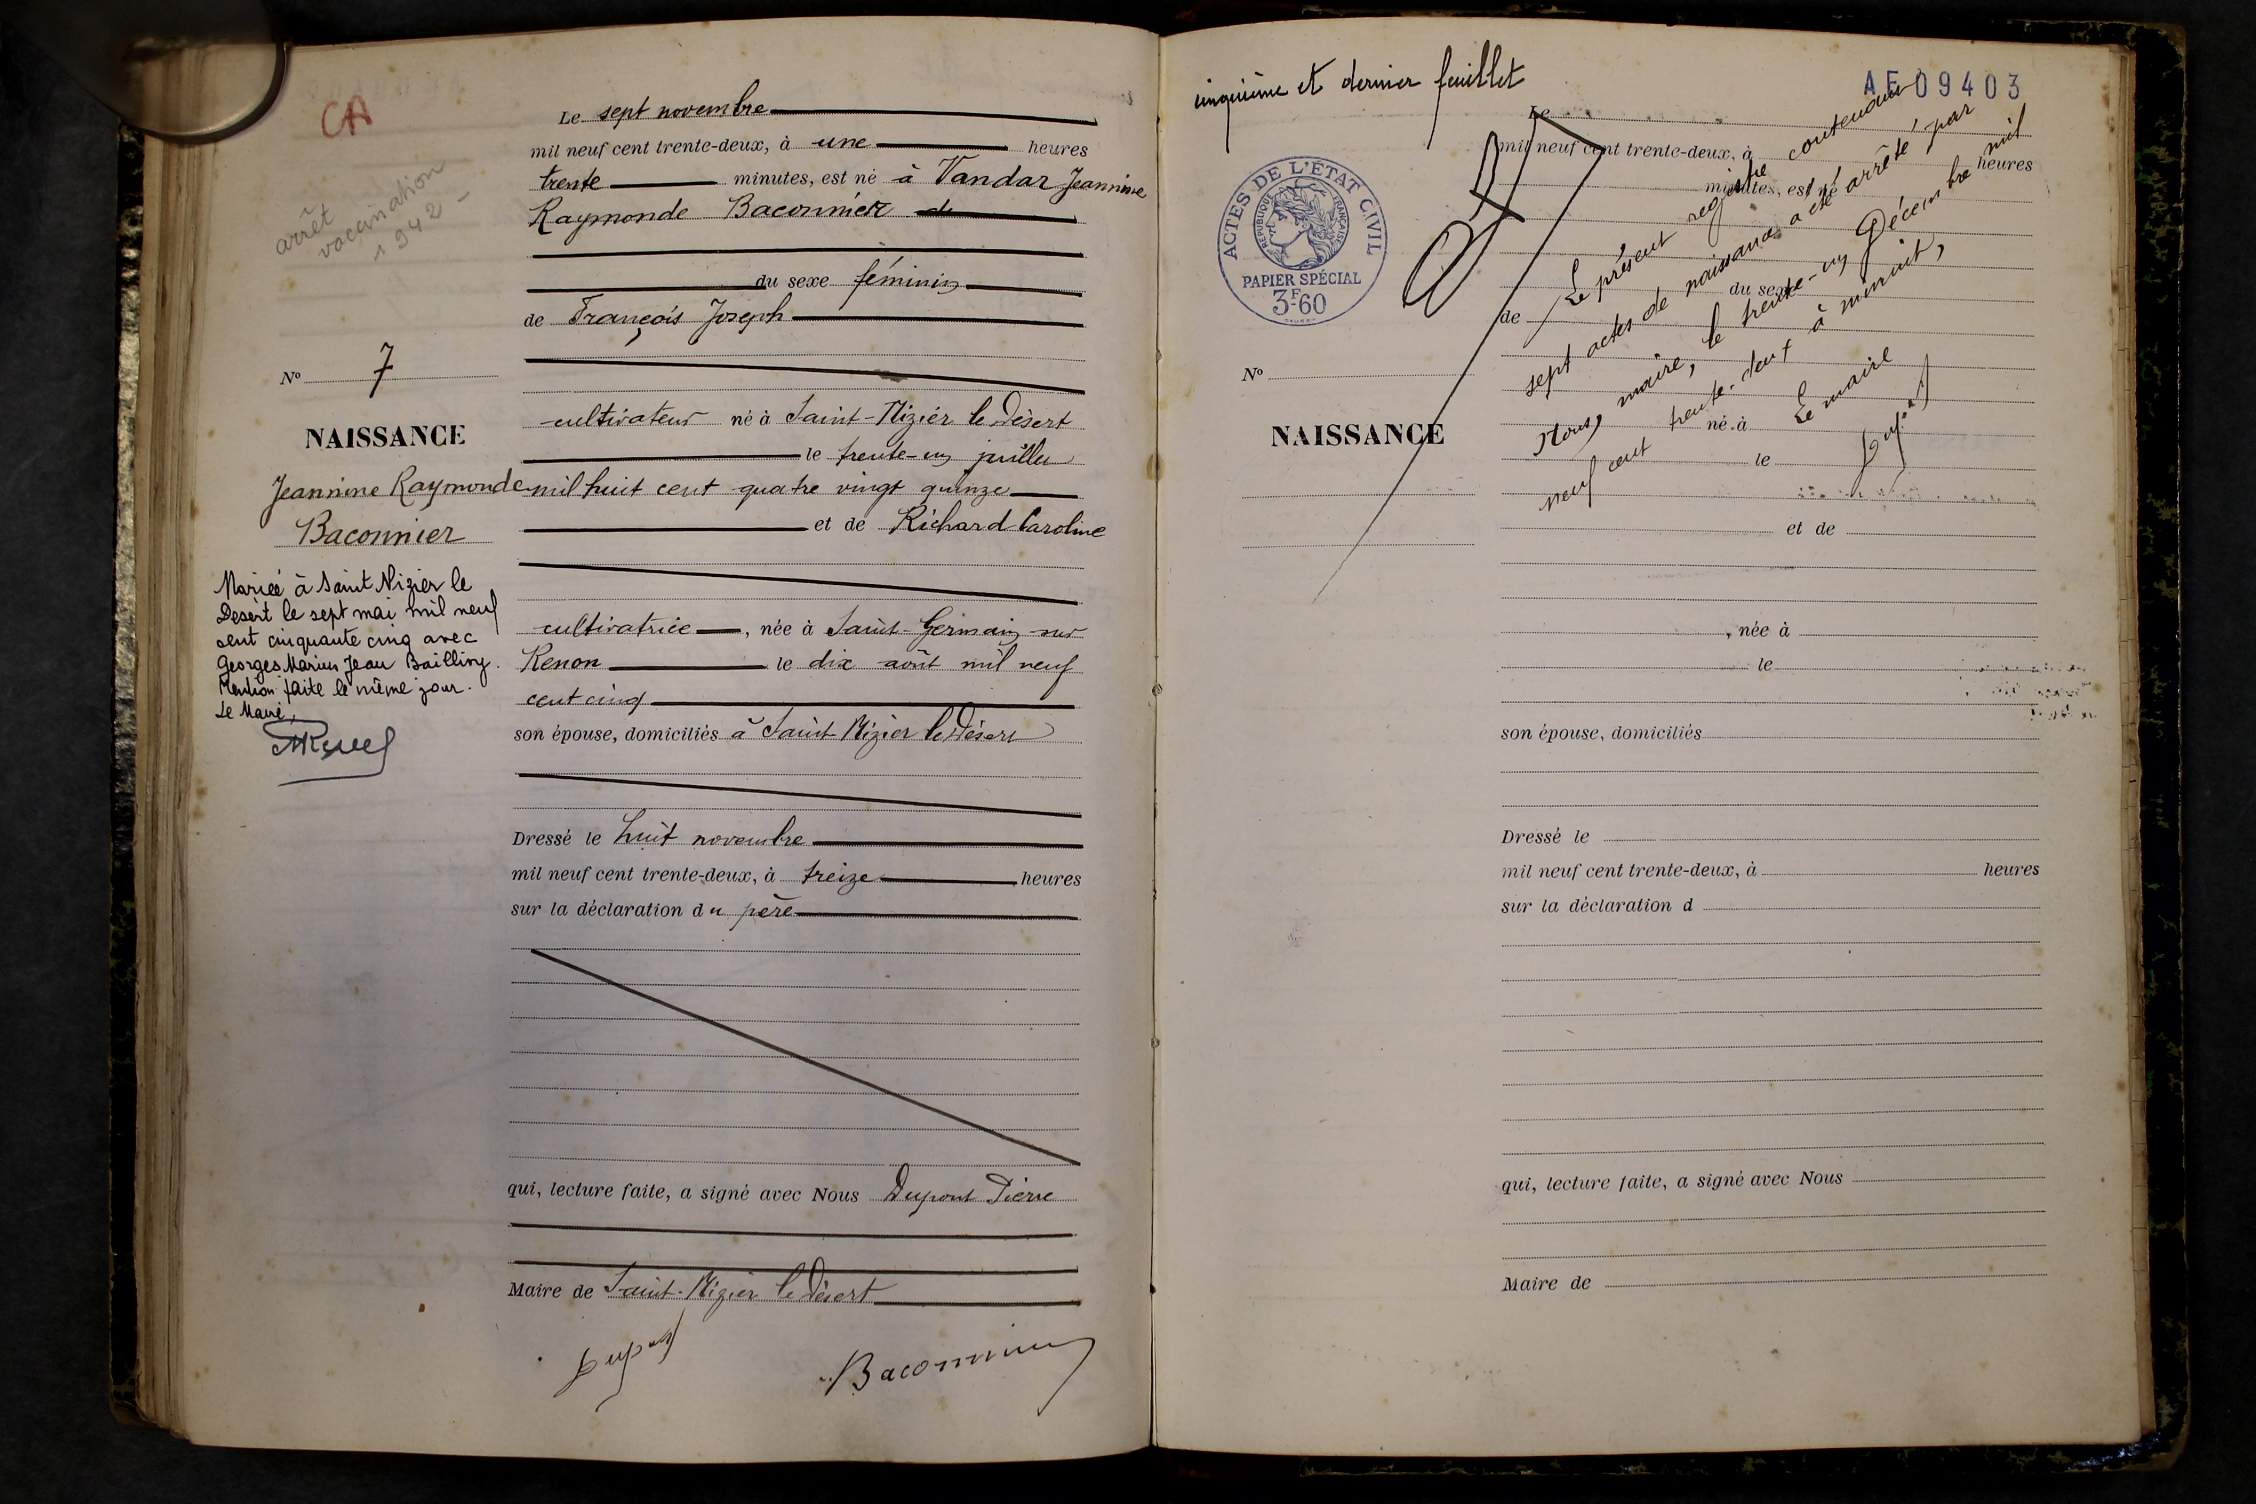 CA
arrêt
vaccination
1942 -
Le sept novembre
mil neuf cent trente-deux, à une heures
trente minutes, est né à Vandar Jeannine
Raymonde Baconnier de
du sexe féminin
de François Joseph
cultivateur né à Saint-Nizier le Désert
le trente-un juillet
mil huit cent quatre vingt quinze
et de Richard Caroline
cultivatrice, née à Saint-Germain sur
Renon le dix août mil neuf
cent cinq
son épouse, domiciliés à Saint Nizier le Désert
Dressé le huit novembre
mil neuf cent trente-deux, à treize heures
sur la déclaration du père
qui, lecture faite, a signé avec Nous Dupont Pierre
Maire de Saint-Nizier le Désert
Dupont
Baconnier
No 7
NAISSANCE
Jeannine Raymonde
Baconnier
Mariée à Saint Nizier le
Desert le sept mai mil neuf
cent cinquante cinq avec
Georges Marius Jean Bailling.
Mention faite le même jour.
Le Maire,
cinquième et dernier feuillet
AE09403
ACTES DE L'ÉTAT CIVIL
RÉPUBLIQUE FRANÇAISE
PAPIER SPÉCIAL
3F60
Le
mil neuf cent trente-deux, à heures
minutes, est né
du sexe
de
né à
le
et de
, née à
le
son épouse, domiciliés
Dressé le
mil neuf cent trente-deux, à heures
sur la déclaration d
qui, lecture faite, a signé avec Nous
Maire de
No
NAISSANCE
Le présent registre contenant
sept actes de naissance a été arrêté par
Nous, maire, le trente-un Décembre mil
neuf cent trente-deux à minuit,
Le maire
Dupont